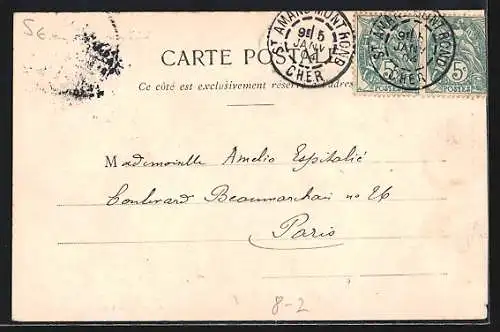 5€
ST AMAND MONT ROND
9E 5
JANV
04
CHER
ST AMAND MONT ROND
JANV
04
CHER
CARTE POSTALE
5c 5c
POSTES POSTES
Ce côté est exclusivement réservé à l'adresse
Mademoiselle Amelie Espitalié
Boulevard Beaumarchais no 26
Paris
8-2